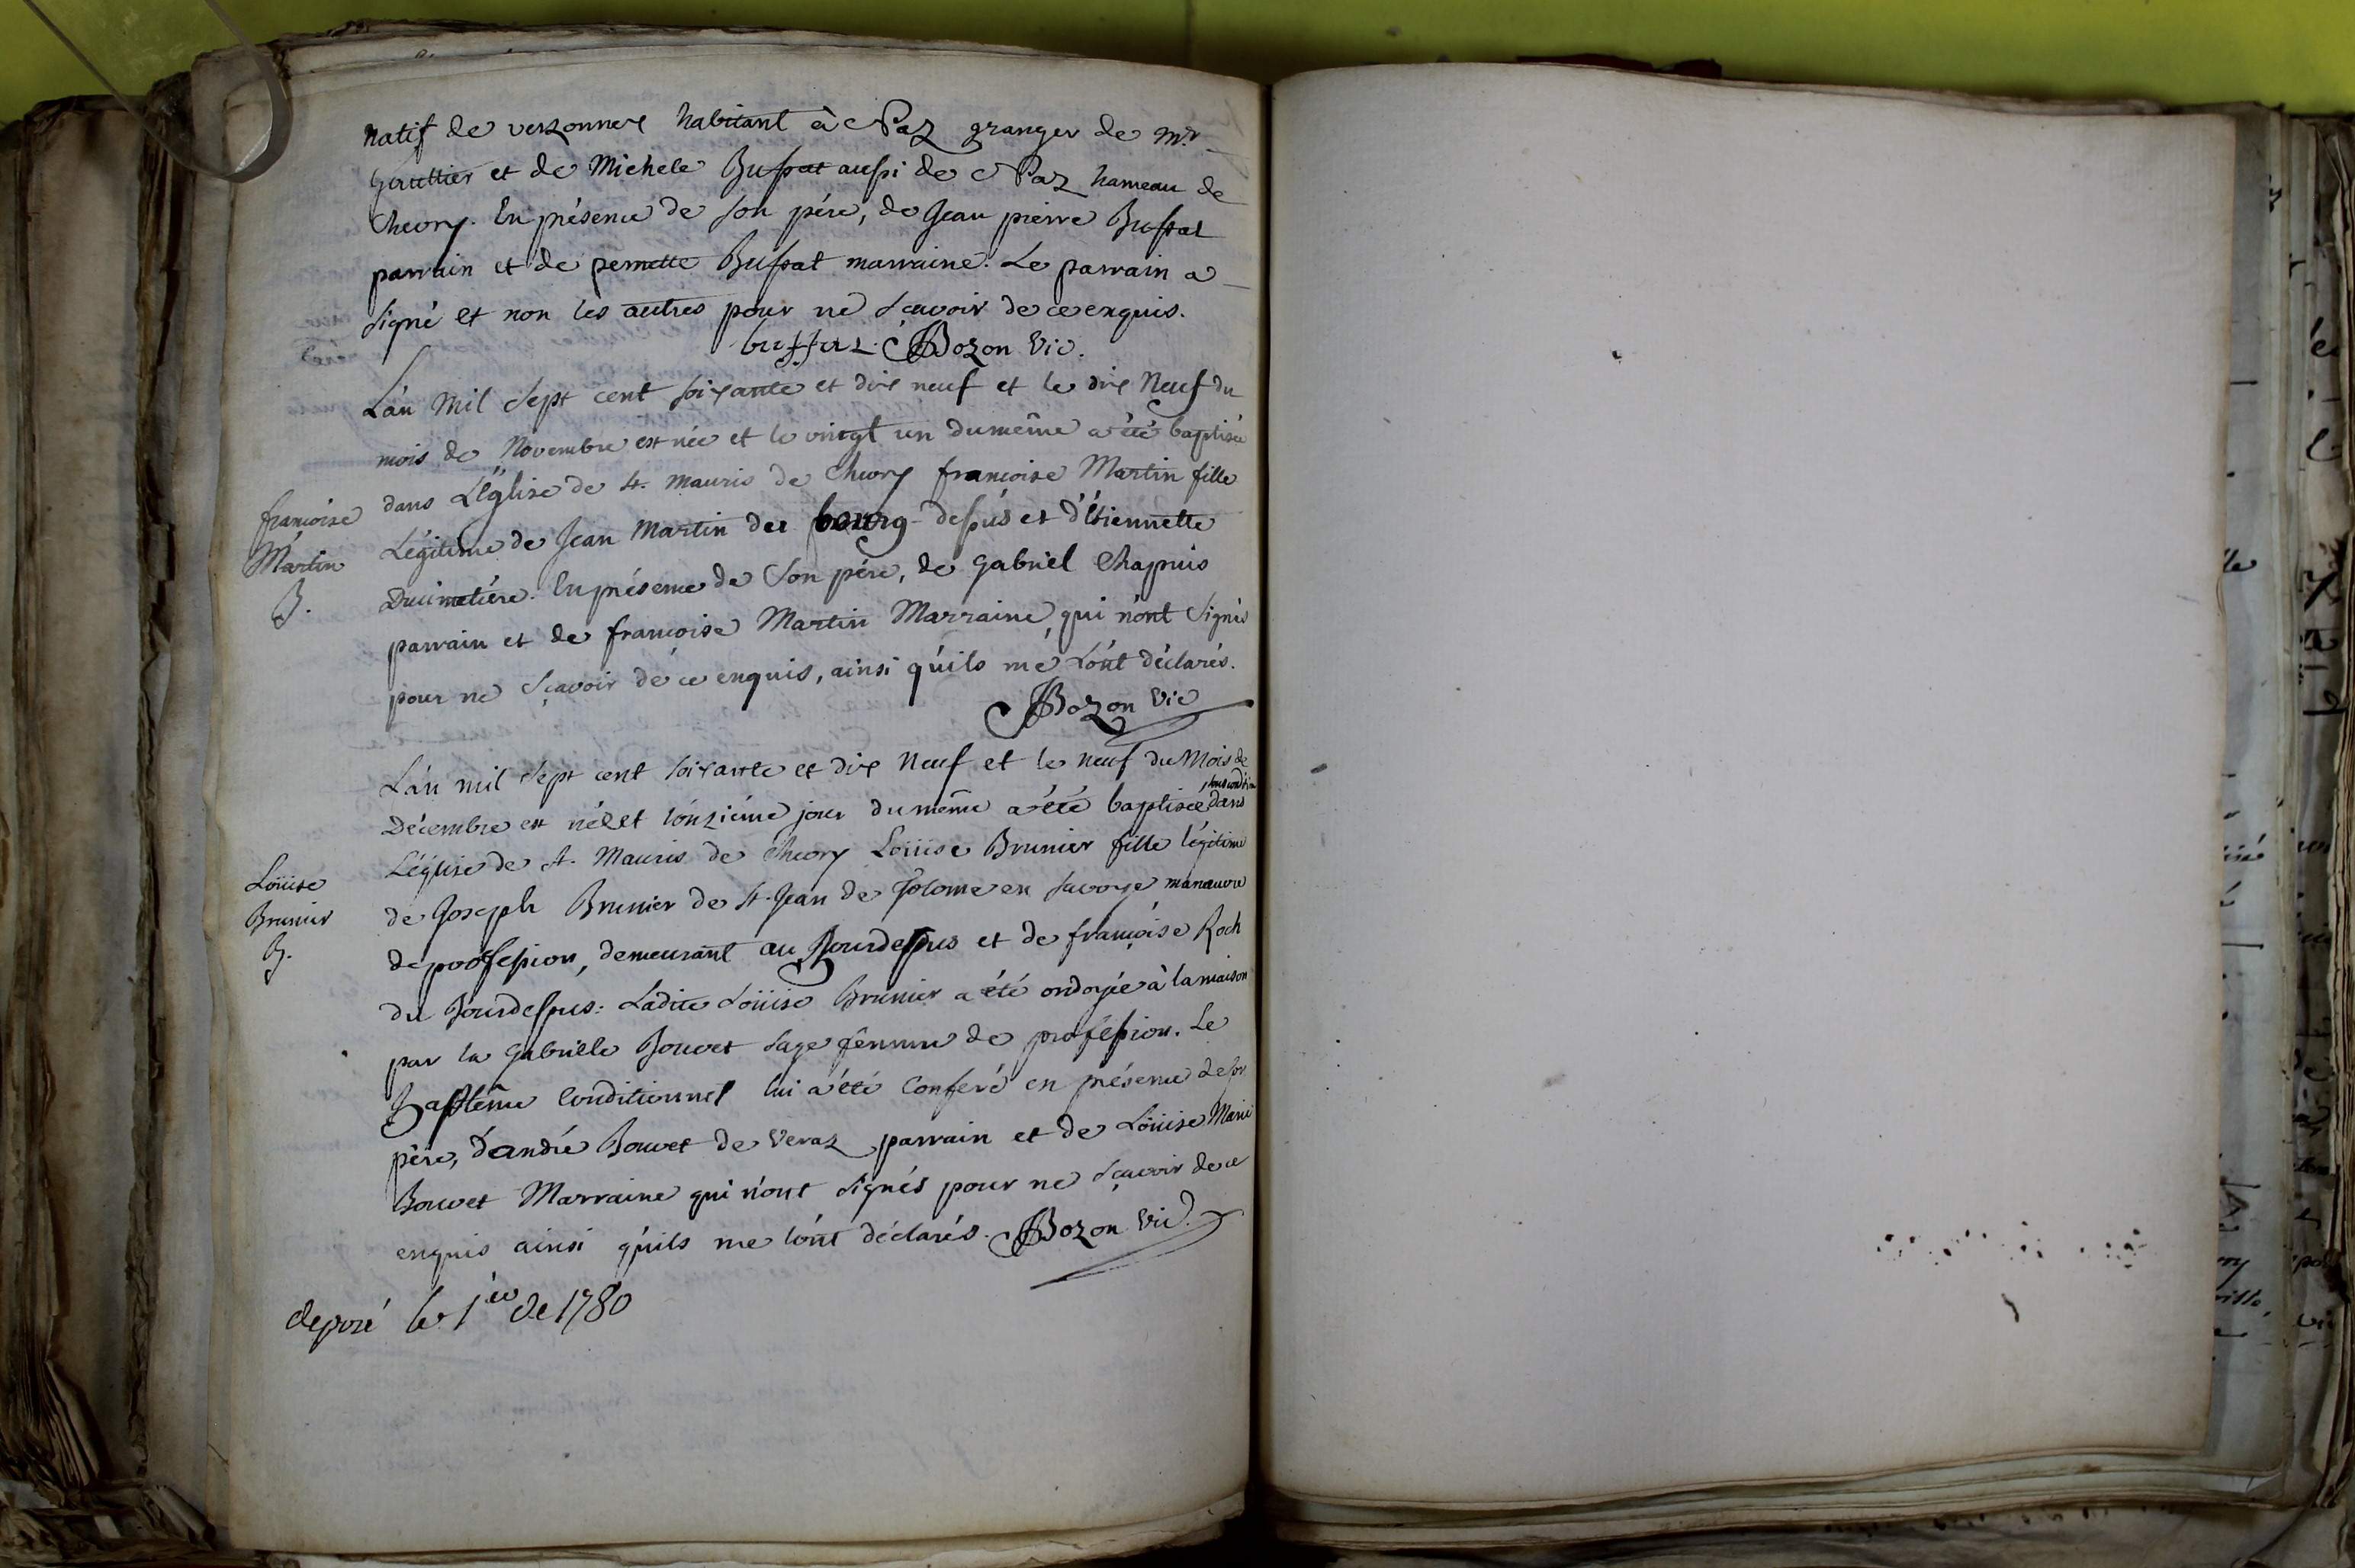 natif de versonnex habitant à Naz granger de Mr
Gaultier et de Michele Bussat aussi de Naz hameau de
Chevry. En présence de son pére, de Jean pierre Bussat
parrain et de pernette Bussat marraine. Le parrain a
signé et non les autres pour ne sçavoir de ce enquis.
bussat. Bozon Vic.
L'an Mil sept cent soixante et dix neuf et le dix Neuf du
mois de Novembre est née et le vingt un du même a été baptisée
dans L'église de st. Mauris de Chevry françoise Martin fille
Légitime de Jean Martin du bourg-dessus et d'étiennette
Ducimetiére. En présence de son pére, de Gabriel Chapuis
parrain et de françoise Martin Marraine, qui n'ont signés
pour ne sçavoir de ce enquis, ainsi qu'ils me L'ont déclarés.
Bozon Vic
françoise
Martin
B.
L'an mil sept cent soixante et dix Neuf et le neuf du Mois de
sous condition
Décembre est née et l'onziéme jour du même a été baptisée dans
L'église de st. Mauris de Chevry Loüise Brunier fille légitime
de Joseph Brunier de st. Jean de Tolome en savoye manœuvre
de proffession, demeurant au Bourdessus et de françoise Roch
du Bourdessus. Ladite Loüise Brunier a été ondoyée à la maison
par la Gabrielle Bouvet sage femme de profession. Le
Baptême Conditionnel lui a été Conferé en présence de son
pére, d'andré Bouvet de Veraz parrain et de Loüise Marie
Bouvet Marraine qui n'ont signés pour ne sçavoir de ce
enquis ainsi qu'ils me l'ont déclarés. Bozon Vic.
Loüise
Brunier
B.
deposé le 1er de 1780